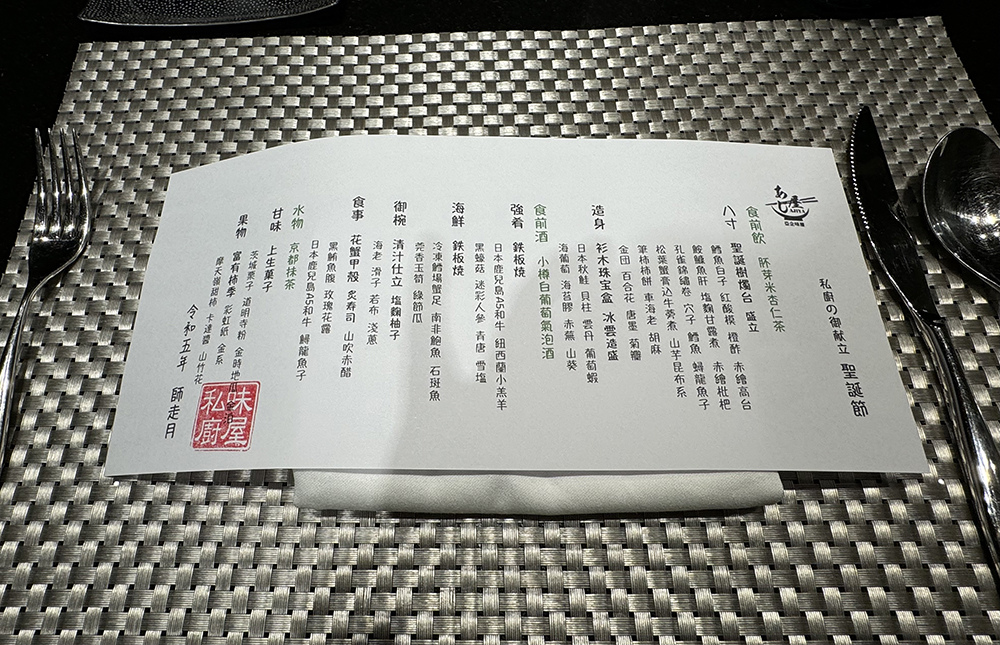 あじ屋
私廚の御献立 聖誕節
食前飲 胚芽米杏仁茶
八寸 聖誕樹燭台 盛立
鱈魚白子 紅酸模 橙酢 赤繪高台
鮟鱇魚肝 塩麴甘露煮 赤繪枇杷
孔雀錦繡卷 穴子 鱈魚 鱘龍魚子
松葉蟹膏込牛蒡煮 山芋昆布系
筆柿柿餅 車海老 胡麻
造身 衫木珠宝盒 冰雲造盛
金団 百合花 唐墨 菊瓣
日本秋鮭 貝柱 雲丹 葡萄蝦
海葡萄 海苔膠 赤蕪 山葵
食前酒 小樽白葡萄氣泡酒
強肴 鉄板焼
日本鹿兒島A5和牛 紐西蘭小羔羊
黑蠔菇 迷彩人參 青唐 雪塩
海鮮 鉄板燒
冷凍鱈場蟹足 南非鮑魚 石斑魚
莞香玉筍 綠節瓜
御椀 清汁仕立 塩麴柚子
海老 滑子 若布 淡蔥
食事 花蟹甲殼 炙寿司 山吹赤醋
日本鹿兒島A5和牛 鱘龍魚子
黑鮪魚腹 玫瑰花露
水物 京都抹茶
甘味 上生菓子
茨城栗子 道明寺粉 金時地瓜 金泊
果物 富有柿季 彩虹紙 金系
摩天嶺甜柿 卡達醬 山竹花
令和五年 師走月
味屋
私廚